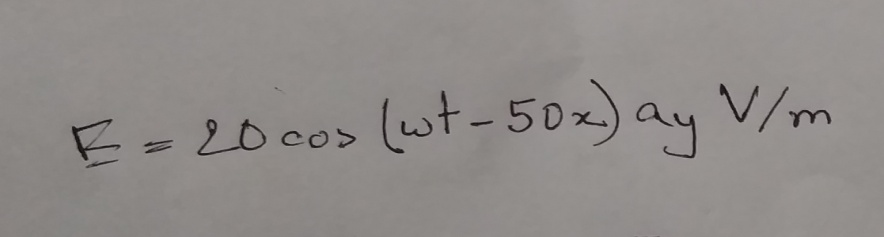 E = 20 cos (ωt - 50x) ay V/m